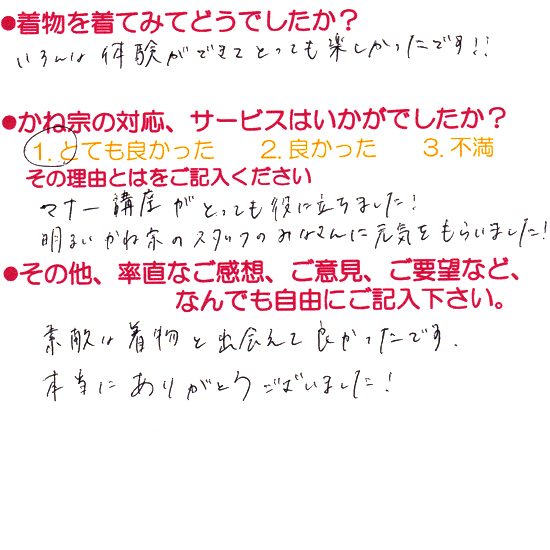 ●着物を着てみてどうでしたか？
いろんな体験ができてとっても楽しかったです!!
●かね宗の対応、サービスはいかがでしたか？
1. とても良かった　2. 良かった　3. 不満
その理由とはをご記入ください
マナー講座がとっても役に立ちました!
明るいかね宗のスタッフのみなさんに元気をもらいました!
●その他、率直なご感想、ご意見、ご要望など、
なんでも自由にご記入下さい。
素敵な着物と出会えて良かったです.
本当にありがとうございました!